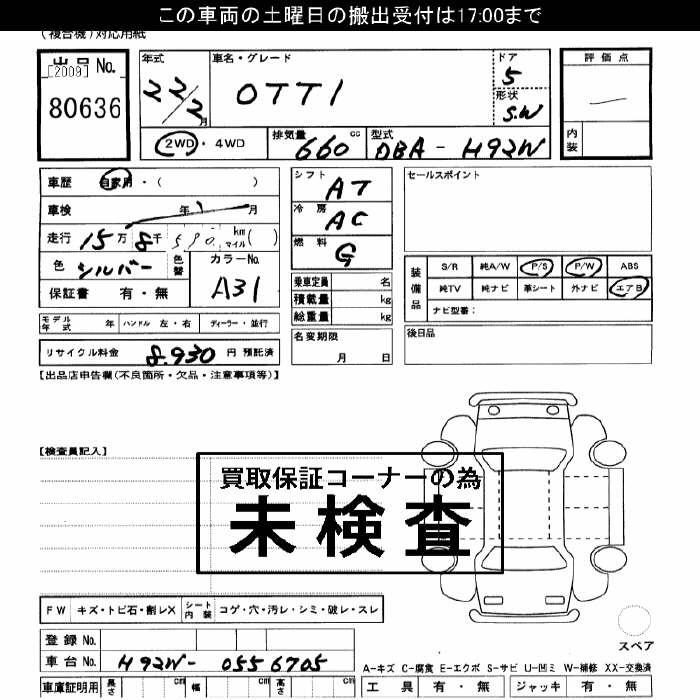 この車両の土曜日の搬出受付は17:00まで
(複合機)対応用紙
出品 No.
[2009]
80636
年式
22/2月
車名・グレード
OTTI
ドア
5
形状
S.W
評価点
内装
2WD ・ 4WD
排気量
660 cc
型式
DBA - H92W
車歴 自家用 ・ ( )
車検 年 月
走行 15万 8千 590 km マイル ( )
色 シルバー 色替
カラーNo.
A31
保証書 有 ・ 無
シフト
AT
冷房
AC
燃料
G
乗車定員 名
積載量 kg
総重量 kg
名変期限
月 日
セールスポイント
装備品
S/R 純A/W P/S P/W ABS
純TV 純ナビ 革シート 外ナビ エアB
ナビ型番:
後日品
モデル年式 年 ハンドル 左・右 ディーラー・並行
リサイクル料金 8,930 円 預託済
【出品店申告欄(不良箇所・欠品・注意事項等)】
【検査員記入】
買取保証コーナーの為
未検査
FW キズ・トビ石・割レX シート内装 コゲ・穴・汚レ・シミ・破レ・スレ
登録 No.
車台 No. H92W- 0556705
車庫証明用 長さ cm 幅 cm 高さ cm
スペア
A-キズ C-腐食 E-エクボ S-サビ U-凹ミ W-補修 XX-交換済
工具 有 ・ 無 ジャッキ 有 ・ 無